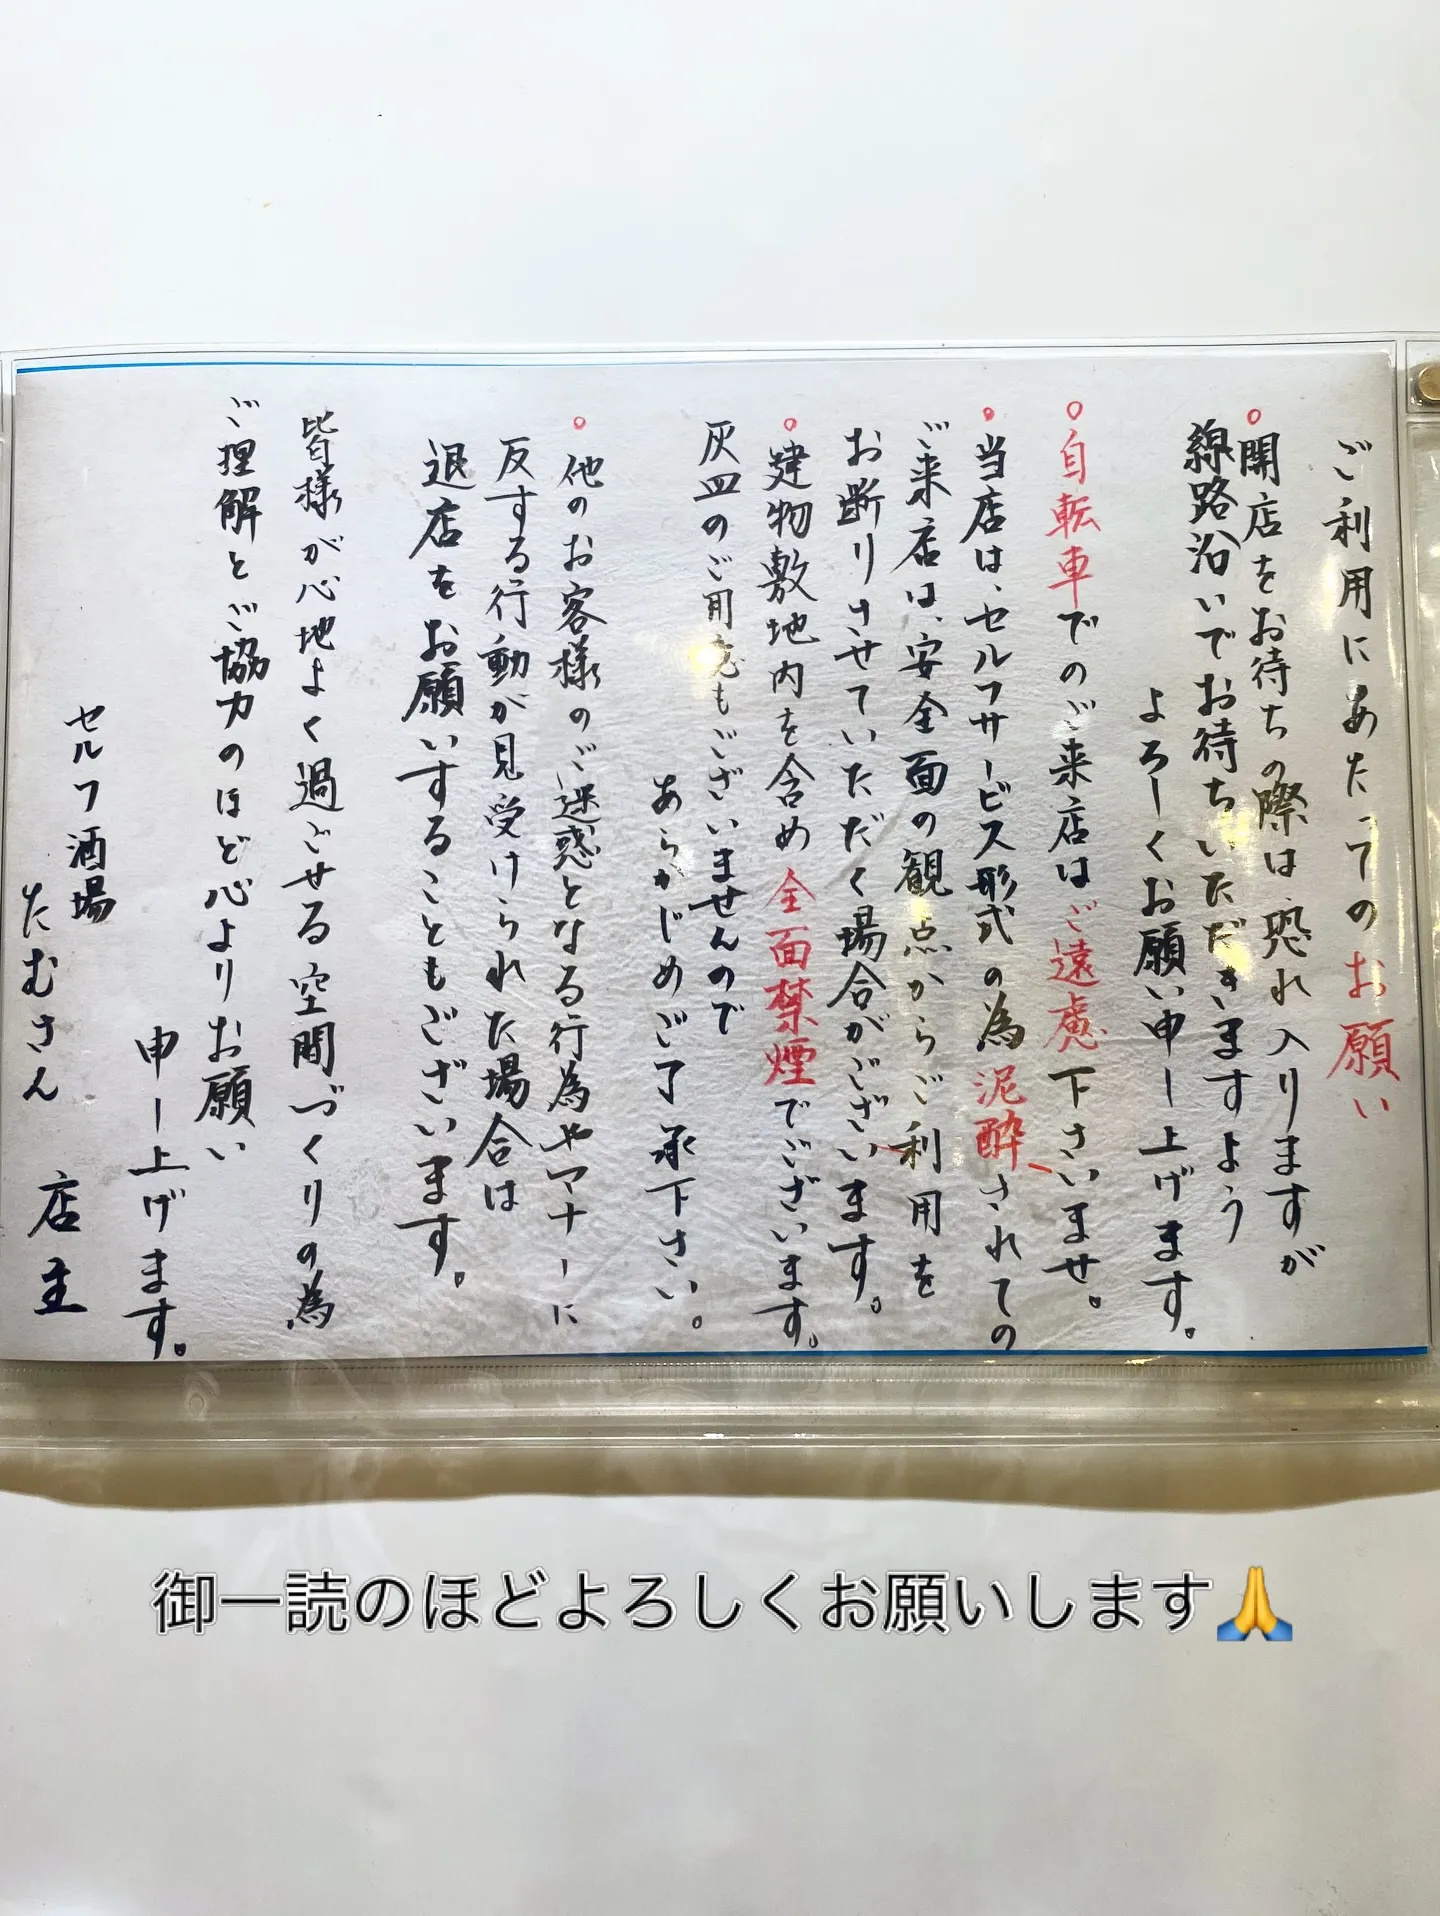 ご利用にあたってのお願い
○開店をお待ちの際は、恐れ入りますが
線路沿いでお待ちいただきますよう
よろしくお願い申し上げます。
○自転車でのご来店はご遠慮下さいませ。
○当店は、セルフサービス形式の為泥酔されての
ご来店は、安全面の観点からご利用を
お断りさせていただく場合がございます。
○建物敷地内を含め全面禁煙でございます。
灰皿のご用意もございませんので
あらかじめご了承下さい。
○他のお客様のご迷惑となる行為やマナーに
反する行動が見受けられた場合は
退店をお願いすることもございます。
皆様が心地よく過ごせる空間づくりの為
ご理解とご協力のほど心よりお願い
申し上げます。
セルフ酒場
たむさん 店主
御一読のほどよろしくお願いします🙏